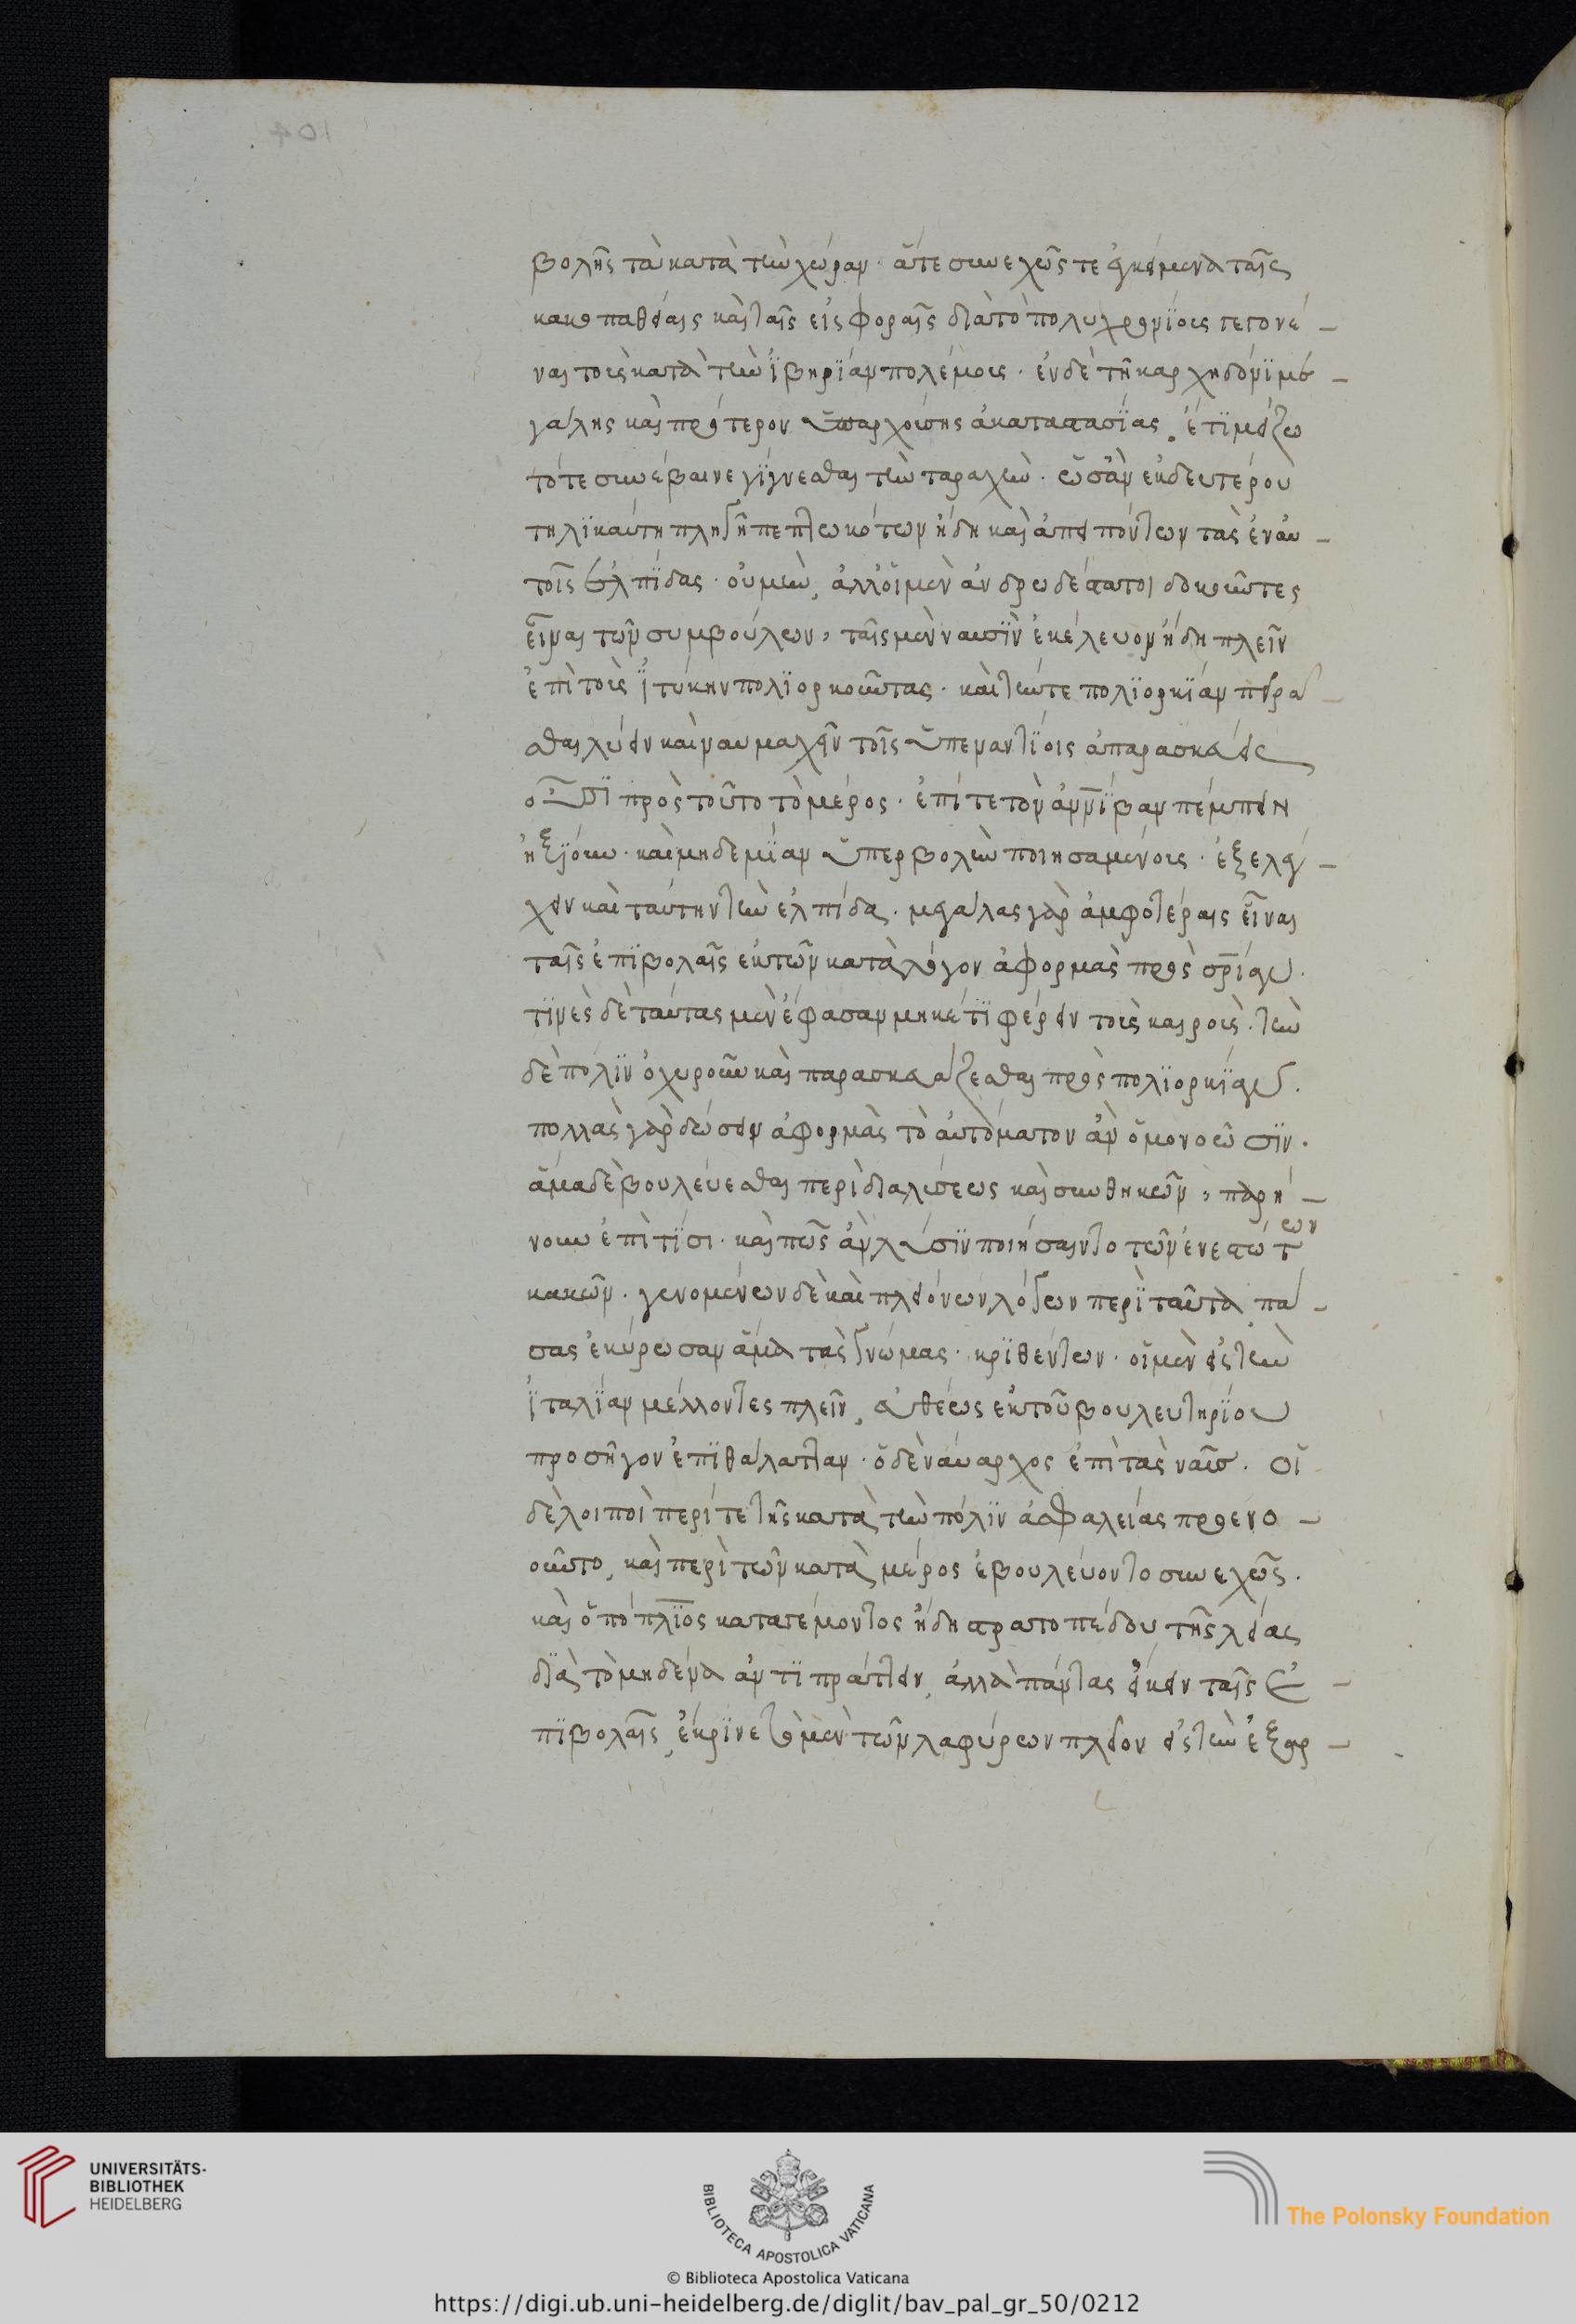 βολῆς τὰ κατὰ τὴν χώραν· ἅτε συνεχῶς τε ἐγκείμενα ταῖς
κακοπαθείαις καὶ ταῖς εἰσφοραῖς διὰ τὸ πολυχρονίοις γεγονέ-
ναι τοὺς κατὰ τὴν ἰβηρίαν πολέμοις· ἐν δὲ τῇ καρχηδόνι με-
γάλης καὶ πρότερον ὑπαρχούσης ἀκαταστασίας, ἔτι μείζω
τότε συνέβαινε γίγνεσθαι τὴν ταραχὴν· ὡς ἂν ἐκ δευτέρου
τηλικαύτῃ πληγῇ πεπτωκότων ἤδη καὶ ἀπειπόντων τὰς ἐν αὑ-
τοῖς ἐλπίδας· οὐ μὴν, ἀλλ' οἱ μὲν ἀνδρωδέστατοι δοκοῦντες
εἶναι τῶν συμβούλων, ταῖς μὲν ναυσὶν ἐκέλευον ἤδη πλεῖν
ἐπὶ τοὺς ἰτύκην πολιορκοῦντας· καὶ τήν τε πολιορκίαν πειρᾶ-
σθαι λύειν καὶ ναυμαχεῖν τοῖς ὑπεναντίοις ἀπαρασκεύοις
οὖσι πρὸς τοῦτο τὸ μέρος· ἐπί τε τὸν ἀννίβαν πέμπειν
ἠξίουν· καὶ μηδεμίαν ὑπερβολὴν ποιησαμένους· ἐξελέγ-
χειν καὶ ταύτην τὴν ἐλπίδα· μεγάλας γὰρ ἀμφοτέραις εἶναι
ταῖς ἐπιβολαῖς ἐκ τῶν κατὰ λόγον ἀφορμὰς πρὸς σρίαν·
τινὲς δὲ ταύτας μὲν ἔφασαν μηκέτι φέρειν τοὺς καιροὺς· τὴν
δὲ πόλιν ὀχυροῦν καὶ παρασκευάζεσθαι πρὸς πολιορκίαν·
πολλὰς γὰρ δώσειν ἀφορμὰς τὸ αὐτόματον ἂν ὁμονοῶσιν·
ἅμα δὲ βουλεύεσθαι περὶ διαλύσεως καὶ συνθηκῶν, παρή-
νουν ἐπὶ τίσι· καὶ πῶς ἂν λύσιν ποιήσαιντο τῶν ἐνεστώτων
κακῶν· γενομένων δὲ καὶ πλειόνων λόγων περὶ ταῦτα, πά-
σας ἐκύρωσαν ἅμα τὰς γνώμας· κριθέντων· οἱ μὲν εἰς τὴν
ἰταλίαν μέλλοντες πλεῖν, εὐθέως ἐκ τοῦ βουλευτηρίου
προσῆγον ἐπὶ θάλατταν· ὁ δὲ ναύαρχος ἐπὶ τὰς ναῦς· οἱ
δὲ λοιποὶ περί τε τῆς κατὰ τὴν πόλιν ἀσφαλείας προενο-
οῦντο, καὶ περὶ τῶν κατὰ μέρος ἐβουλεύοντο συνεχῶς·
καὶ ὁ πόπλιος καταγέμοντος ἤδη στρατοπέδου τῆς λείας
διὰ τὸ μηδένα ἀντιπράττειν, ἀλλὰ πάντας εἴκειν ταῖς ἐ-
πιβολαῖς, ἔκρινε τὸ μὲν τῶν λαφύρων πλεῖον εἰς τὴν ἐξ ἀρ-
UNIVERSITÄTS-
BIBLIOTHEK
HEIDELBERG
BIBLIOTECA APOSTOLICA VATICANA
The Polonsky Foundation
© Biblioteca Apostolica Vaticana
https://digi.ub.uni-heidelberg.de/diglit/bav_pal_gr_50/0212